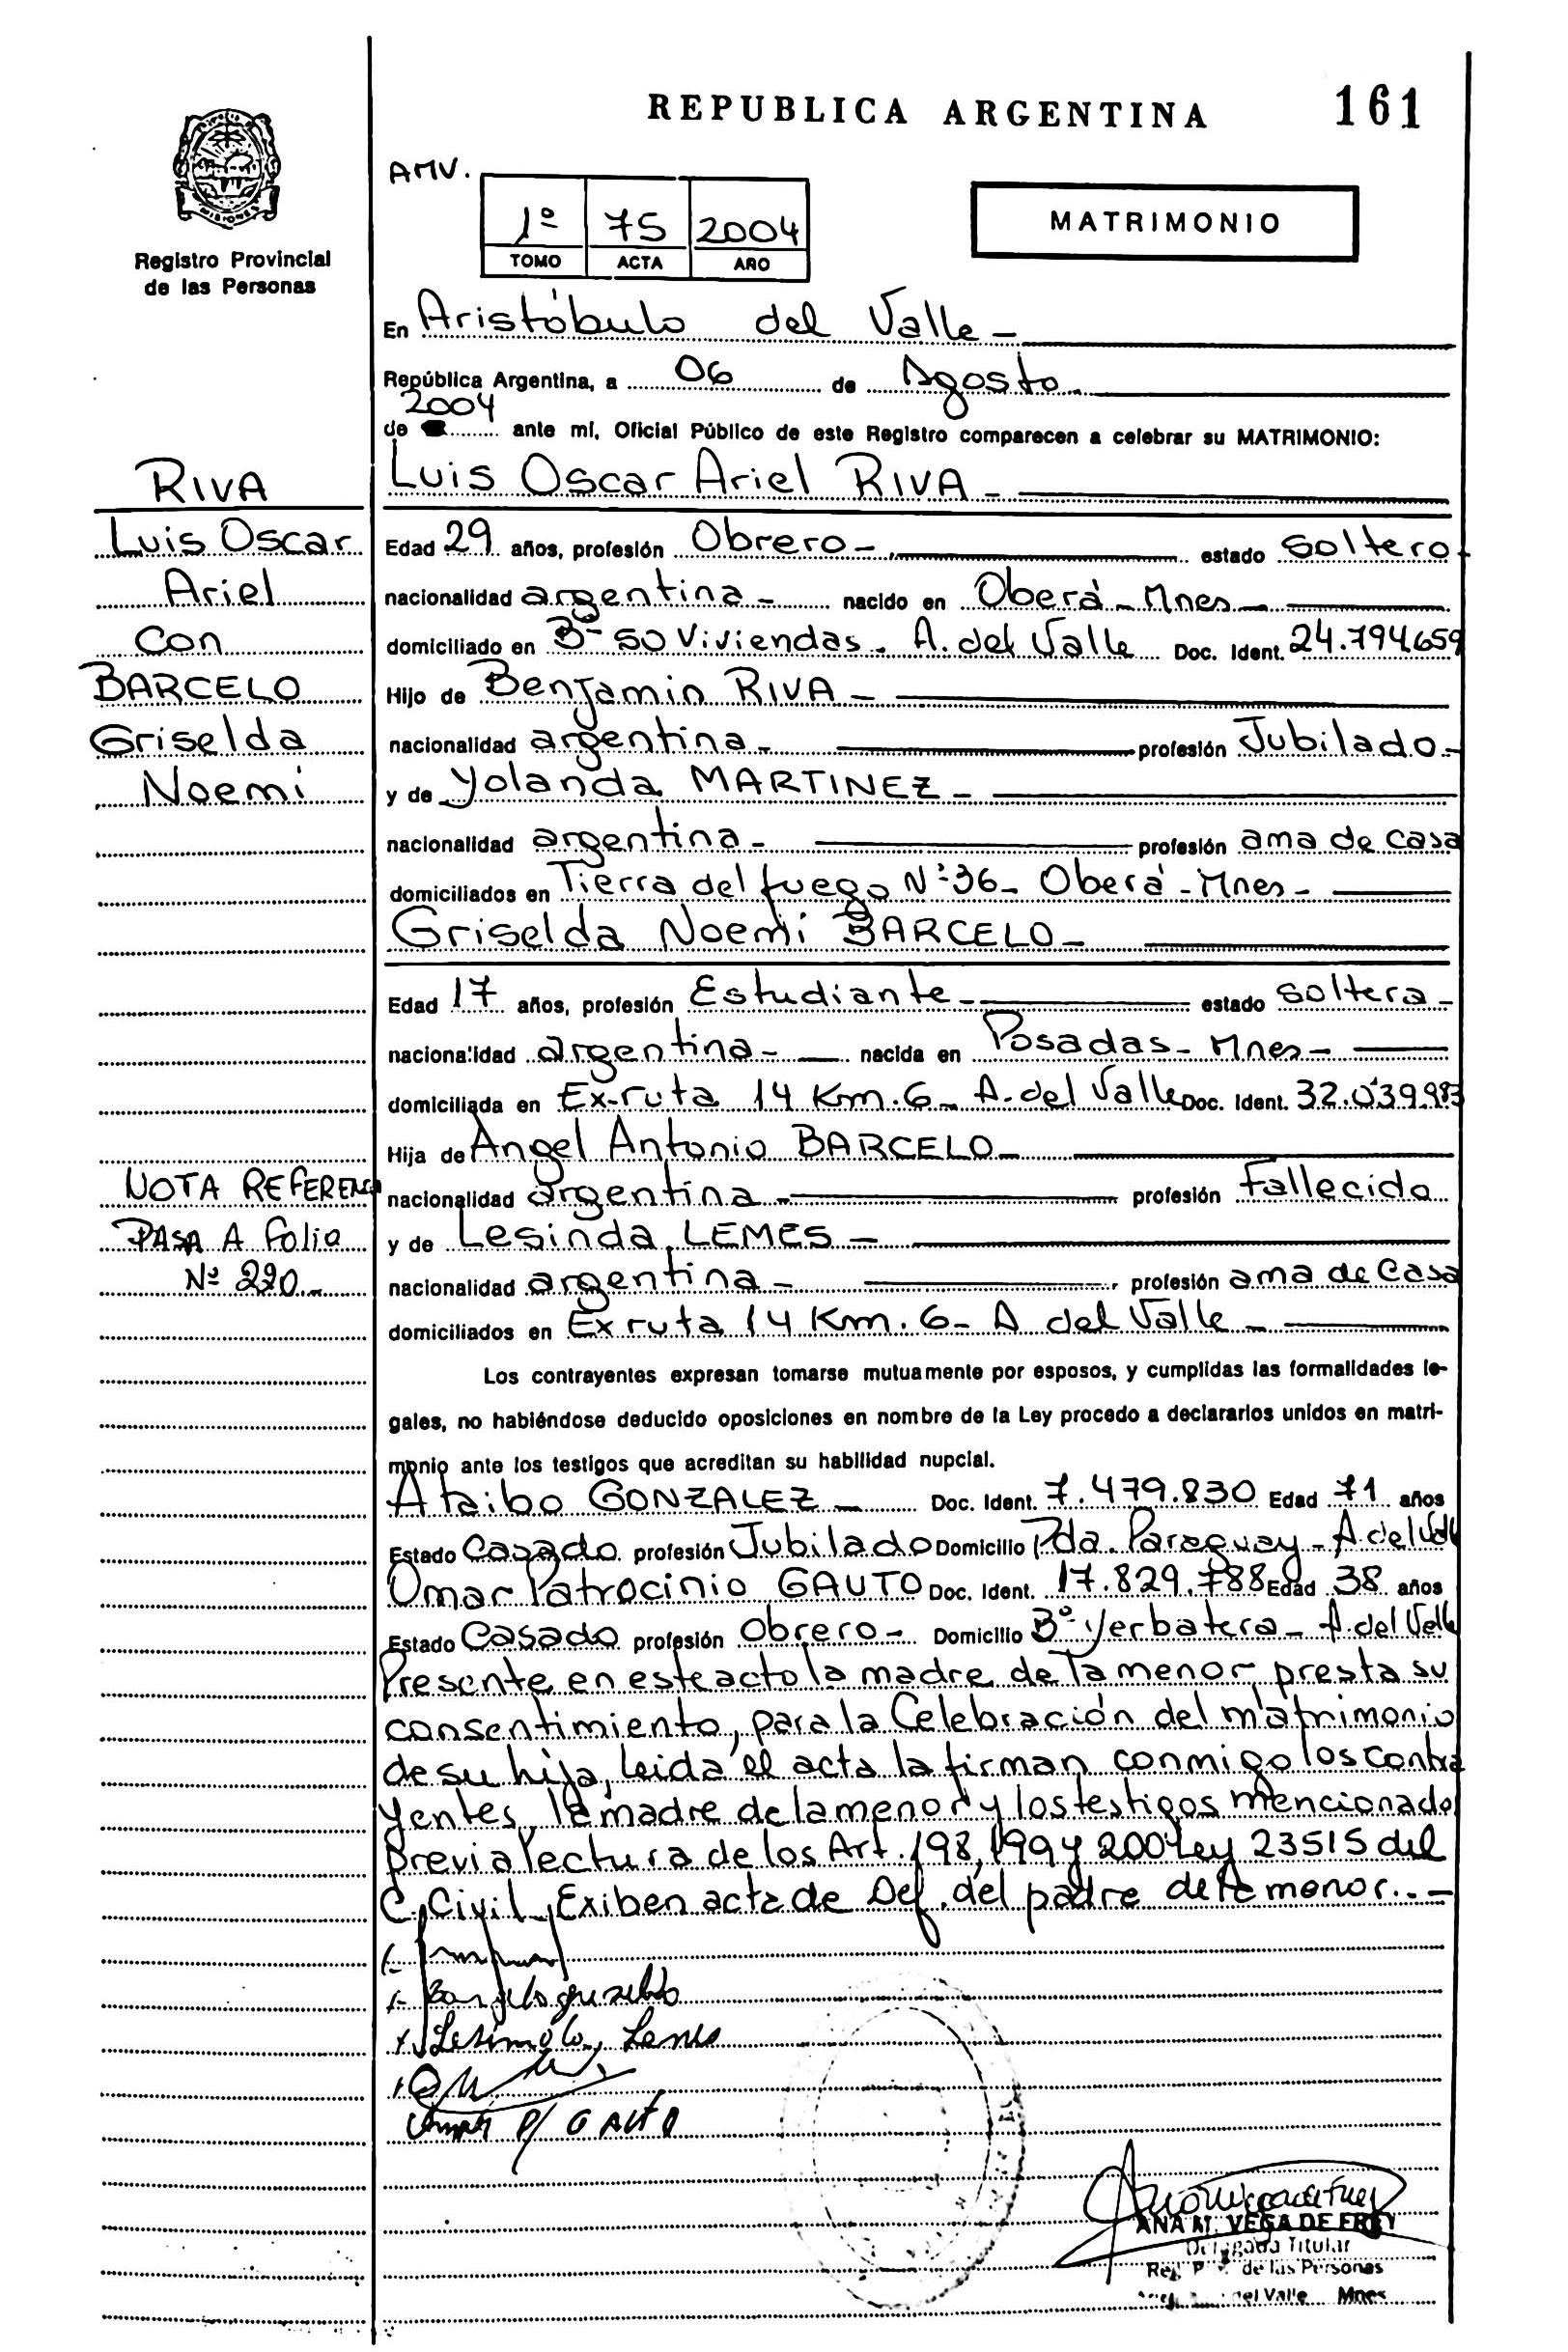 REPUBLICA ARGENTINA 161
MISIONES
Registro Provincial
de las Personas
AMV.
1º 75 2004
TOMO ACTA AÑO
MATRIMONIO
En Aristóbulo del Valle -
República Argentina, a 06 de Agosto.
2004
de ante mí, Oficial Público de este Registro comparecen a celebrar su MATRIMONIO:
RIVA
Luis Oscar
Ariel
Con
BARCELO
Griselda
Noemí
Luis Oscar Ariel RIVA -
Edad 29 años, profesión Obrero - estado Soltero -
nacionalidad argentina - nacido en Oberá - Mnes -
domiciliado en Bº 50 Viviendas. A. del Valle Doc. Ident. 24.794.659
Hijo de Benjamin RIVA -
nacionalidad argentina - profesión Jubilado -
y de Yolanda MARTINEZ -
nacionalidad argentina - profesión ama de casa
domiciliados en Tierra del fuego Nº 36 - Oberá - Mnes -
Griselda Noemí BARCELO -
Edad 17 años, profesión Estudiante - estado Soltera -
nacionalidad argentina - nacida en Posadas - Mnes -
domiciliada en Ex-ruta 14 Km. 6 - A. del Valle Doc. Ident. 32.039.983
Hija de Angel Antonio BARCELO -
NOTA REFERENCI
PASA A folio
Nº 220.-
nacionalidad argentina - profesión Fallecido
y de Lesinda LEMES -
nacionalidad argentina - profesión ama de Casa
domiciliados en Ex ruta 14 Km. 6 - A del Valle -
Los contrayentes expresan tomarse mutuamente por esposos, y cumplidas las formalidades le-
gales, no habiéndose deducido oposiciones en nombre de la Ley procedo a declararlos unidos en matri-
monio ante los testigos que acreditan su habilidad nupcial.
Ataibo GONZALEZ - Doc. Ident. 7.479.830 Edad 71 años
Estado Casado profesión Jubilado Domicilio Pda. Paraguay - A del Valle
Omar Patrocinio GAUTO Doc. Ident. 17.829.788 Edad 38 años
Estado Casado profesión Obrero - Domicilio Bº Yerbatera - A. del Valle
Presente en este acto la madre de la menor, presta su
consentimiento, para la Celebración del matrimonio
de su hija, leida el acta la firman conmigo los contra
yentes, la madre de la menor y los testigos mencionado
previa lectura de los Art. 198, 199 y 200 Ley 23515 del
C. Civil. Exiben acta de Def. del padre de la menor.. -
Barcelo griselda
Lesinda Lemes
Omar P/ GAUTO
ANA M. VEGA DE FREY
Delegada Titular
Reg. P. de las Personas
del Valle Mnes